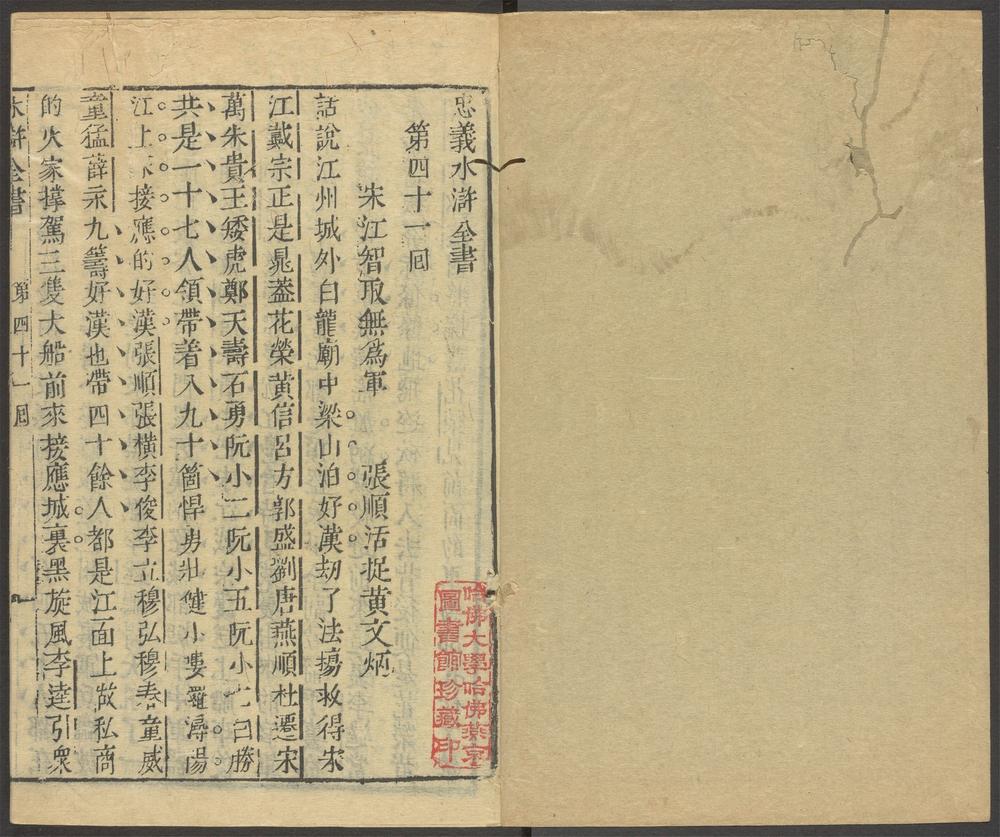 忠義水滸全書
第四十一回
宋江智取無爲軍　張順活捉黄文炳
話說江州城外白龍廟中梁山泊好漢刼了法塲救得宋
江戴宗正是晁葢花榮黄信呂方郭盛劉唐燕順杜遷宋
萬朱貴王矮虎鄭天壽石勇阮小二阮小五阮小七白勝
共是一十七人領帶着八九十箇悍勇壯健小嘍囉潯陽
江上來接應的好漢張順張橫李俊李立穆弘穆春童威
童猛薛永九籌好漢也帶四十餘人都是江面上做私商
的火家撑駕三隻大船前來接應城裏黑旋風李逵引衆
水滸全書　第四十一回
哈佛大學哈佛燕京
圖書館珍藏印